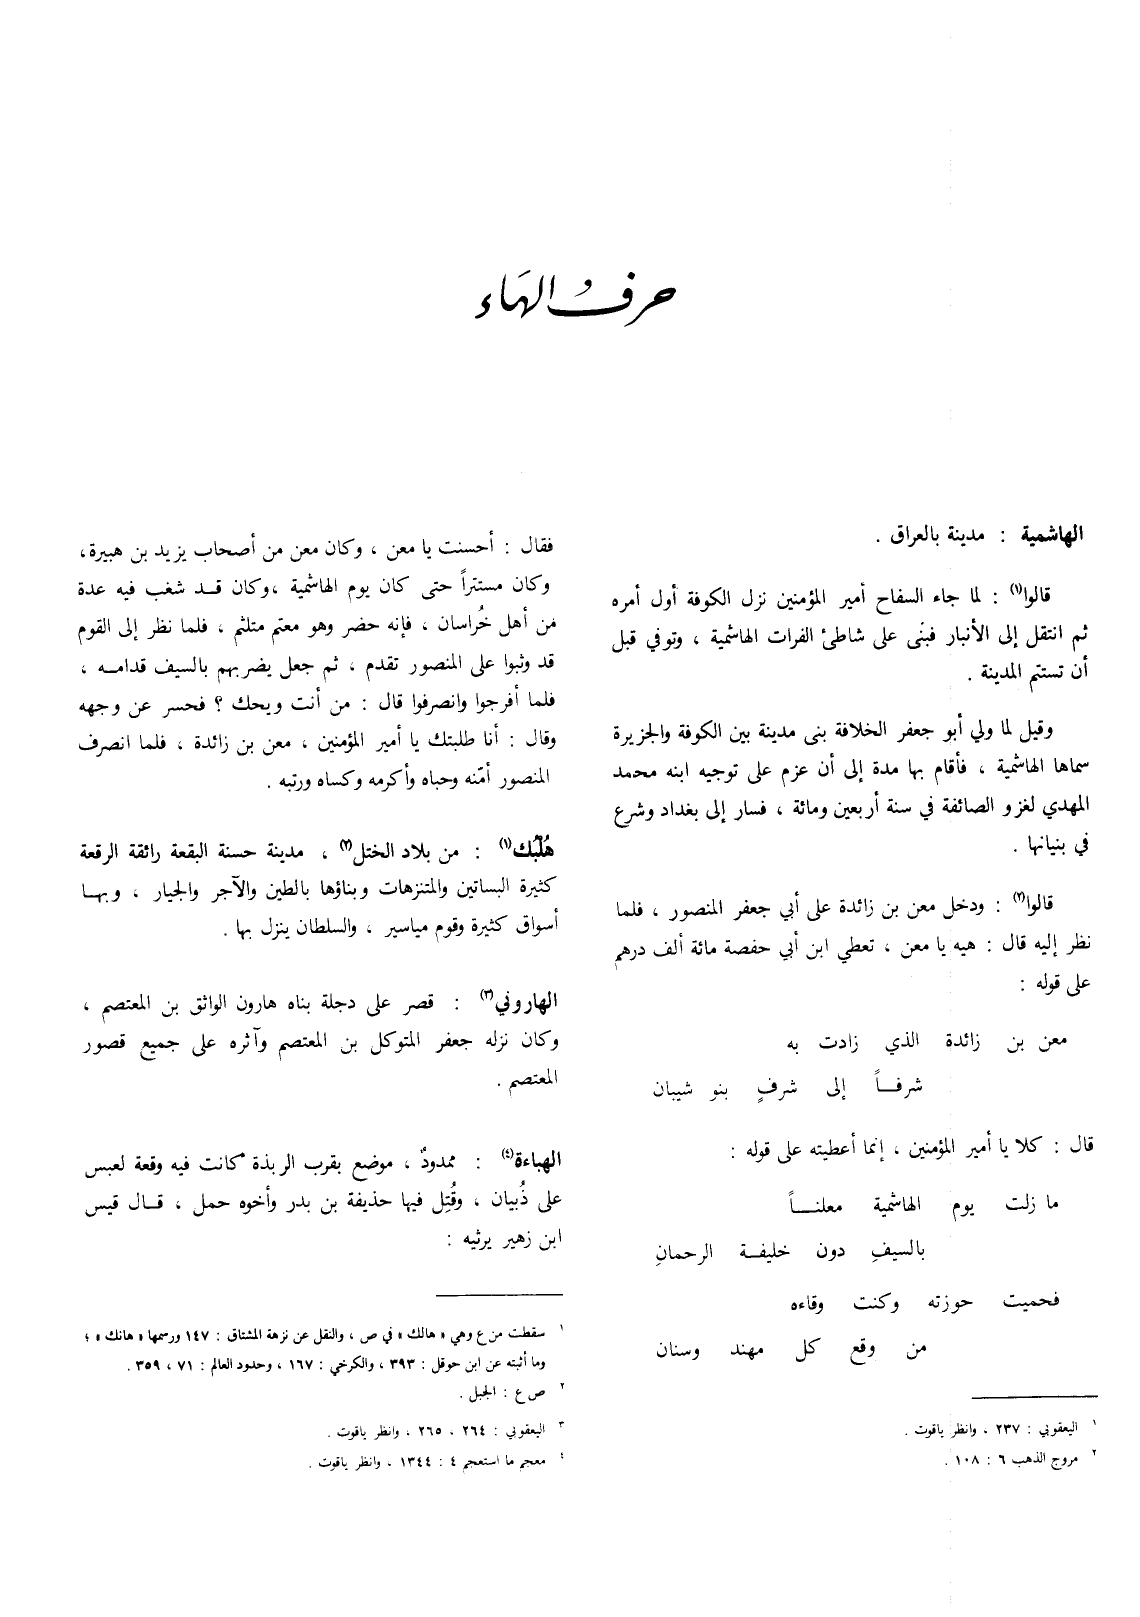 حرفُ الهَاء
الهاشمية : مدينة بالعراق .
قالوا(١) : لما جاء السفاح أمير المؤمنين نزل الكوفة أول أمره
ثم انتقل إلى الأنبار فبنَى على شاطئ الفرات الهاشمية ، وتوفي قبل
أن تستتم المدينة .
وقيل لما ولي أبو جعفر الخلافة بنى مدينة بين الكوفة والجزيرة
سماها الهاشمية ، فأقام بها مدة إلى أن عزم على توجيه ابنه محمد
المهدي لغزو الصائفة في سنة أربعين ومائة ، فسار إلى بغداد وشرع
في بنيانها .
قالوا(٢) : ودخل معن بن زائدة على أبي جعفر المنصور ، فلما
نظر إليه قال : هيه يا معن ، تعطي ابن أبي حفصة مائة ألف درهم
على قوله :
معن بن زائدة الذي زادت به
شرفـــاً إلى شرفٍ بنو شيبان
قال : كلا يا أمير المؤمنين ، إنما أعطيته على قوله :
ما زلت يوم الهاشمية معلنـــاً
بالسيفِ دون خليفـة الرحمانِ
فحميت حوزته وكنت وقاءه
من وقع كل مهند وسنان
١ اليعقوبي : ٢٣٧ ، وانظر ياقوت .
٢ مروج الذهب ٦ : ١٠٨ .
فقال : أحسنت يا معن ، وكان معن من أصحاب يزيد بن هبيرة،
وكان مستتراً حتى كان يوم الهاشمية ،وكان قــد شغب فيه عدة
من أهل خُراسان ، فإنه حضر وهو معتم متلثم ، فلما نظر إلى القوم
قد وثبوا على المنصور تقدم ، ثم جعل يضربهم بالسيف قدامــه ،
فلما أفرجوا وانصرفوا قال : من أنت ويحك ؟ فحسر عن وجهه
وقال : أنا طلبتك يا أمير المؤمنين ، معن بن زائدة ، فلما انصرف
المنصور أمّنه وحباه وأكرمه وكساه ورتبه .
هُلْبُك(١) : من بلاد الختل(٢) ، مدينة حسنة البقعة رائقة الرقعة
كثيرة البساتين والمتنزهات وبناؤها بالطين والآجر والجيار ، وبهــا
أسواق كثيرة وقوم مياسير ، والسلطان ينزل بها .
الهاروني(٣) : قصر على دجلة بناه هارون الواثق بن المعتصم ،
وكان نزله جعفر المتوكل بن المعتصم وآثره على جميع قصور
المعتصم .
الهباءة(٤) : ممدودٌ ، موضع بقرب الربذة كانت فيه وقعة لعبس
على ذُبيان ، وقُتِل فيها حذيفة بن بدر وأخوه حمل ، قــال قيس
ابن زهير يرثيه :
١ سقطت من ع وهي « هالك » في ص ، والنقل عن نزهة المشتاق : ١٤٧ ورسمها « هانك » ؛
وما أثبته عن ابن حوقل : ٣٩٣ ، والكرخي : ١٦٧ ، وحدود العالم : ٧١ ، ٣٥٩ .
٢ ص ع : الجبل .
٣ اليعقوبي : ٢٦٤ ، ٢٦٥ ، وانظر ياقوت .
٤ معجم ما استعجم ٤ : ١٣٤٤ ، وانظر ياقوت .